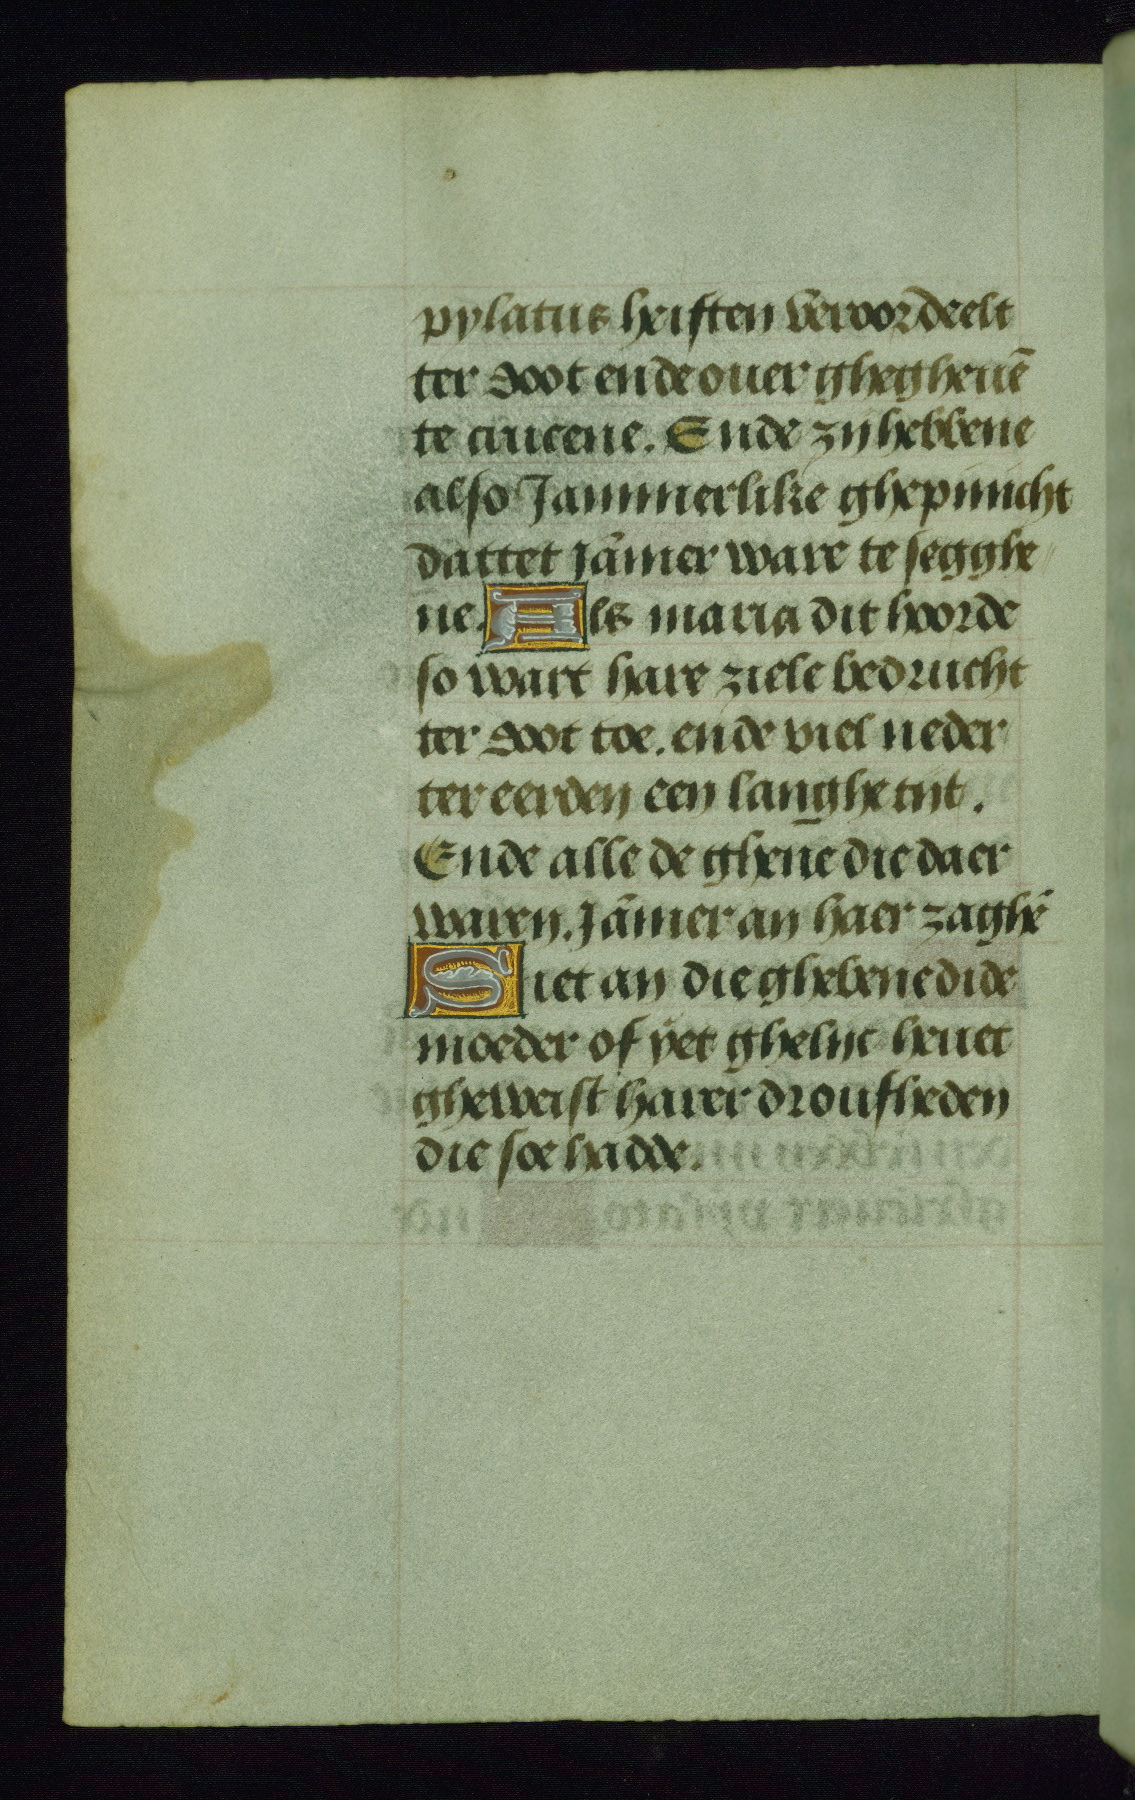 pylatus heiften veroordeelt
ter doot ende ouer ghegheuē
te crucene. Ende zy hebbene
also Jammerlike ghepinicht
dattet Jāmer ware te segghe
ne. Als maria dit hoorde
so wart hare ziele bedrucht
ter doot toe. ende viel neder
ter eerden een langhe tijt.
Ende alle de ghene die daer
waren. Jāmer an haer zaghē
Siet an die ghebenedide
moeder of yet ghelijc heuet
gheweist harer droufheden
die soe hadde.